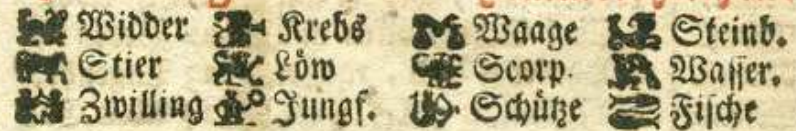 Widder Krebs Waage Steinb.
Stier Löw Scorp. Wasser.
Zwilling Jungf. Schütze Fische